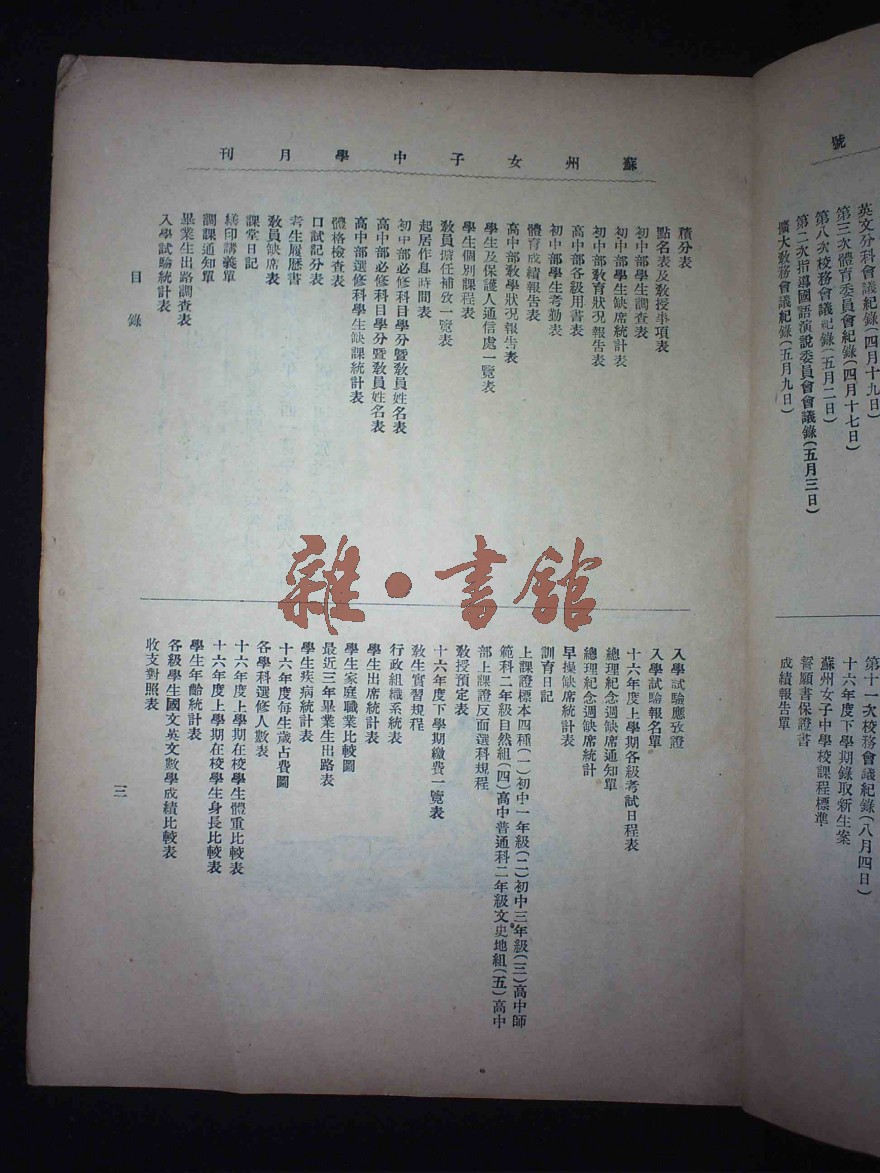 號
英文分科會議紀錄(四月十九日)
第三次體育委員會紀錄(四月十七日)
第八次校務會議記錄(五月二日)
第二次指導國語演說委員會會議錄(五月三日)
擴大教務會議紀錄(五月九日)
第十一次校務會議紀錄(八月四日)
十六年度下學期錄取新生案
蘇州女子中學校課程標準
誓願書保證書
成績報告單
蘇州女子中學月刊
積分表
點名表及教授事項表
初中部學生調查表
初中部學生缺席統計表
初中部教育狀況報告表
高中部各級用書表
初中部學生考勤表
體育成績報告表
高中部教學狀况報告表
學生及保護人通信處一覽表
學生個別課程表
教員擔任補攷一覽表
起居作息時間表
初中部必修科目學分暨教員姓名表
高中部必修科目學分暨教員姓名表
高中部選修科學生缺課統計表
體格檢查表
口試記分表
考生履歷書
教員缺席表
課堂日記
繕印講義單
調課通知單
畢業生出路調查表
入學試驗統計表
入學試驗應攷證
入學試驗報名單
十六年度上學期各級考試日程表
總理紀念週缺席通知單
總理紀念週缺席統計
早操缺席統計表
訓育日記
上課證標本四種(一)初中一年級(二)初中三年級(三)高中師
範科二年級自然組(四)高中普通科二年級文史地組(五)高中
部上課證反面選科規程
教授預定表
十六年度下學期繳費一覽表
教生實習規程
行政組織系統表
學生出席統計表
學生家庭職業比較圖
最近三年畢業生出路表
學生疾病統計表
十六年度每生歲占費圖
各學科選修人數表
十六年度上學期在校學生體重比較表
十六年度上學期在校學生身長比較表
學生年齡統計表
各級學生國文英文數學成績比較表
收支對照表
目錄
三
雜·書館